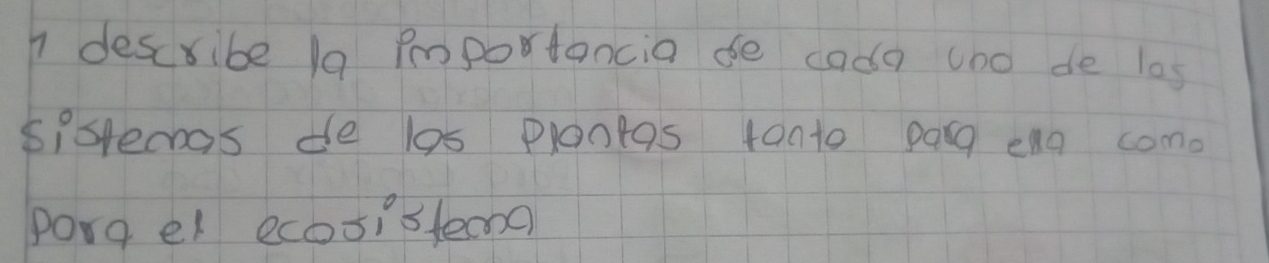 1 describe la importancia de cada uno de las
sistemas de las plantas tanto para ella como
para el ecosistema